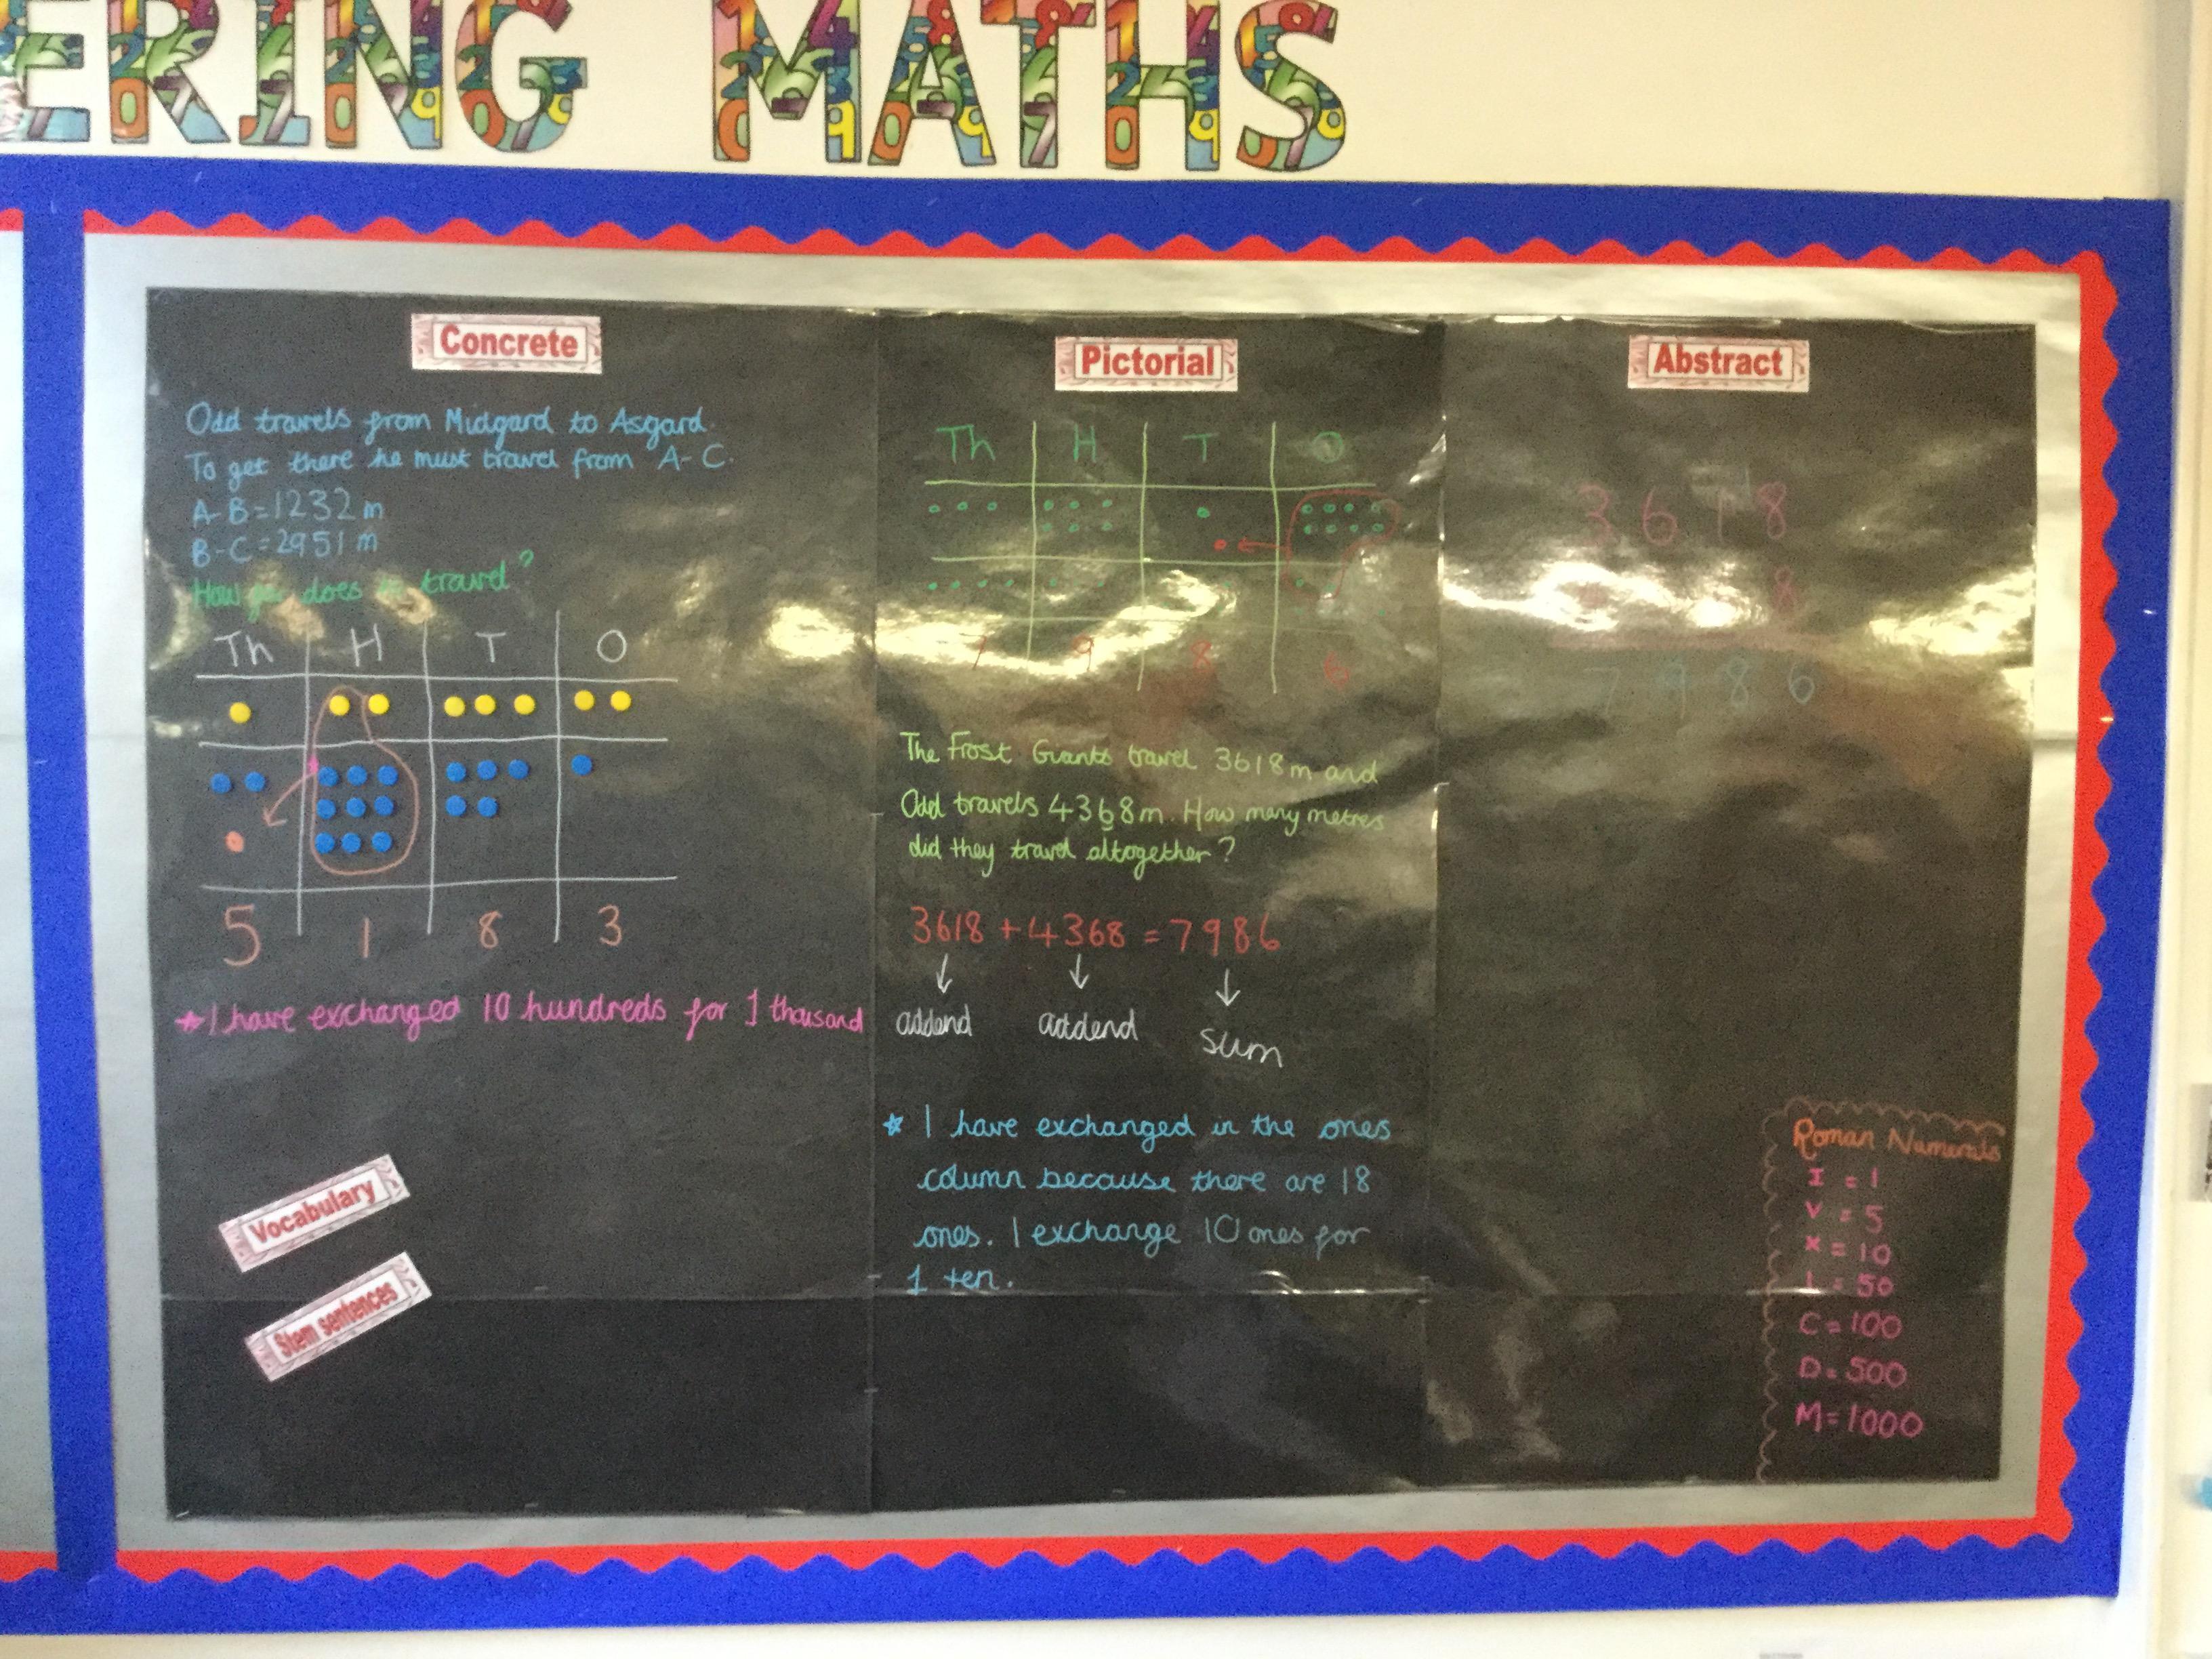 ERING MATHS
Concrete
Odd travels from Midgard to Asgard.
To get there he must travel from A-C.
A-B=1232m
B-C=2951m
How does travel?
Th H T O
5 1 8 3
★I have exchanged 10 hundreds for 1 thousand
Vocabulary
Stem sentences
Pictorial
Th H T O
7 9 8 6
The Frost Giants travel 3618m and
Odd travels 4368m. How many metres
did they travel altogether?
3618 + 4368 = 7986
addend addend sum
★ I have exchanged in the ones
column because there are 18
ones. I exchange 10 ones for
1 ten.
Abstract
3618
8
7986
Roman Numerals
I = 1
V = 5
X = 10
L = 50
C = 100
D = 500
M = 1000